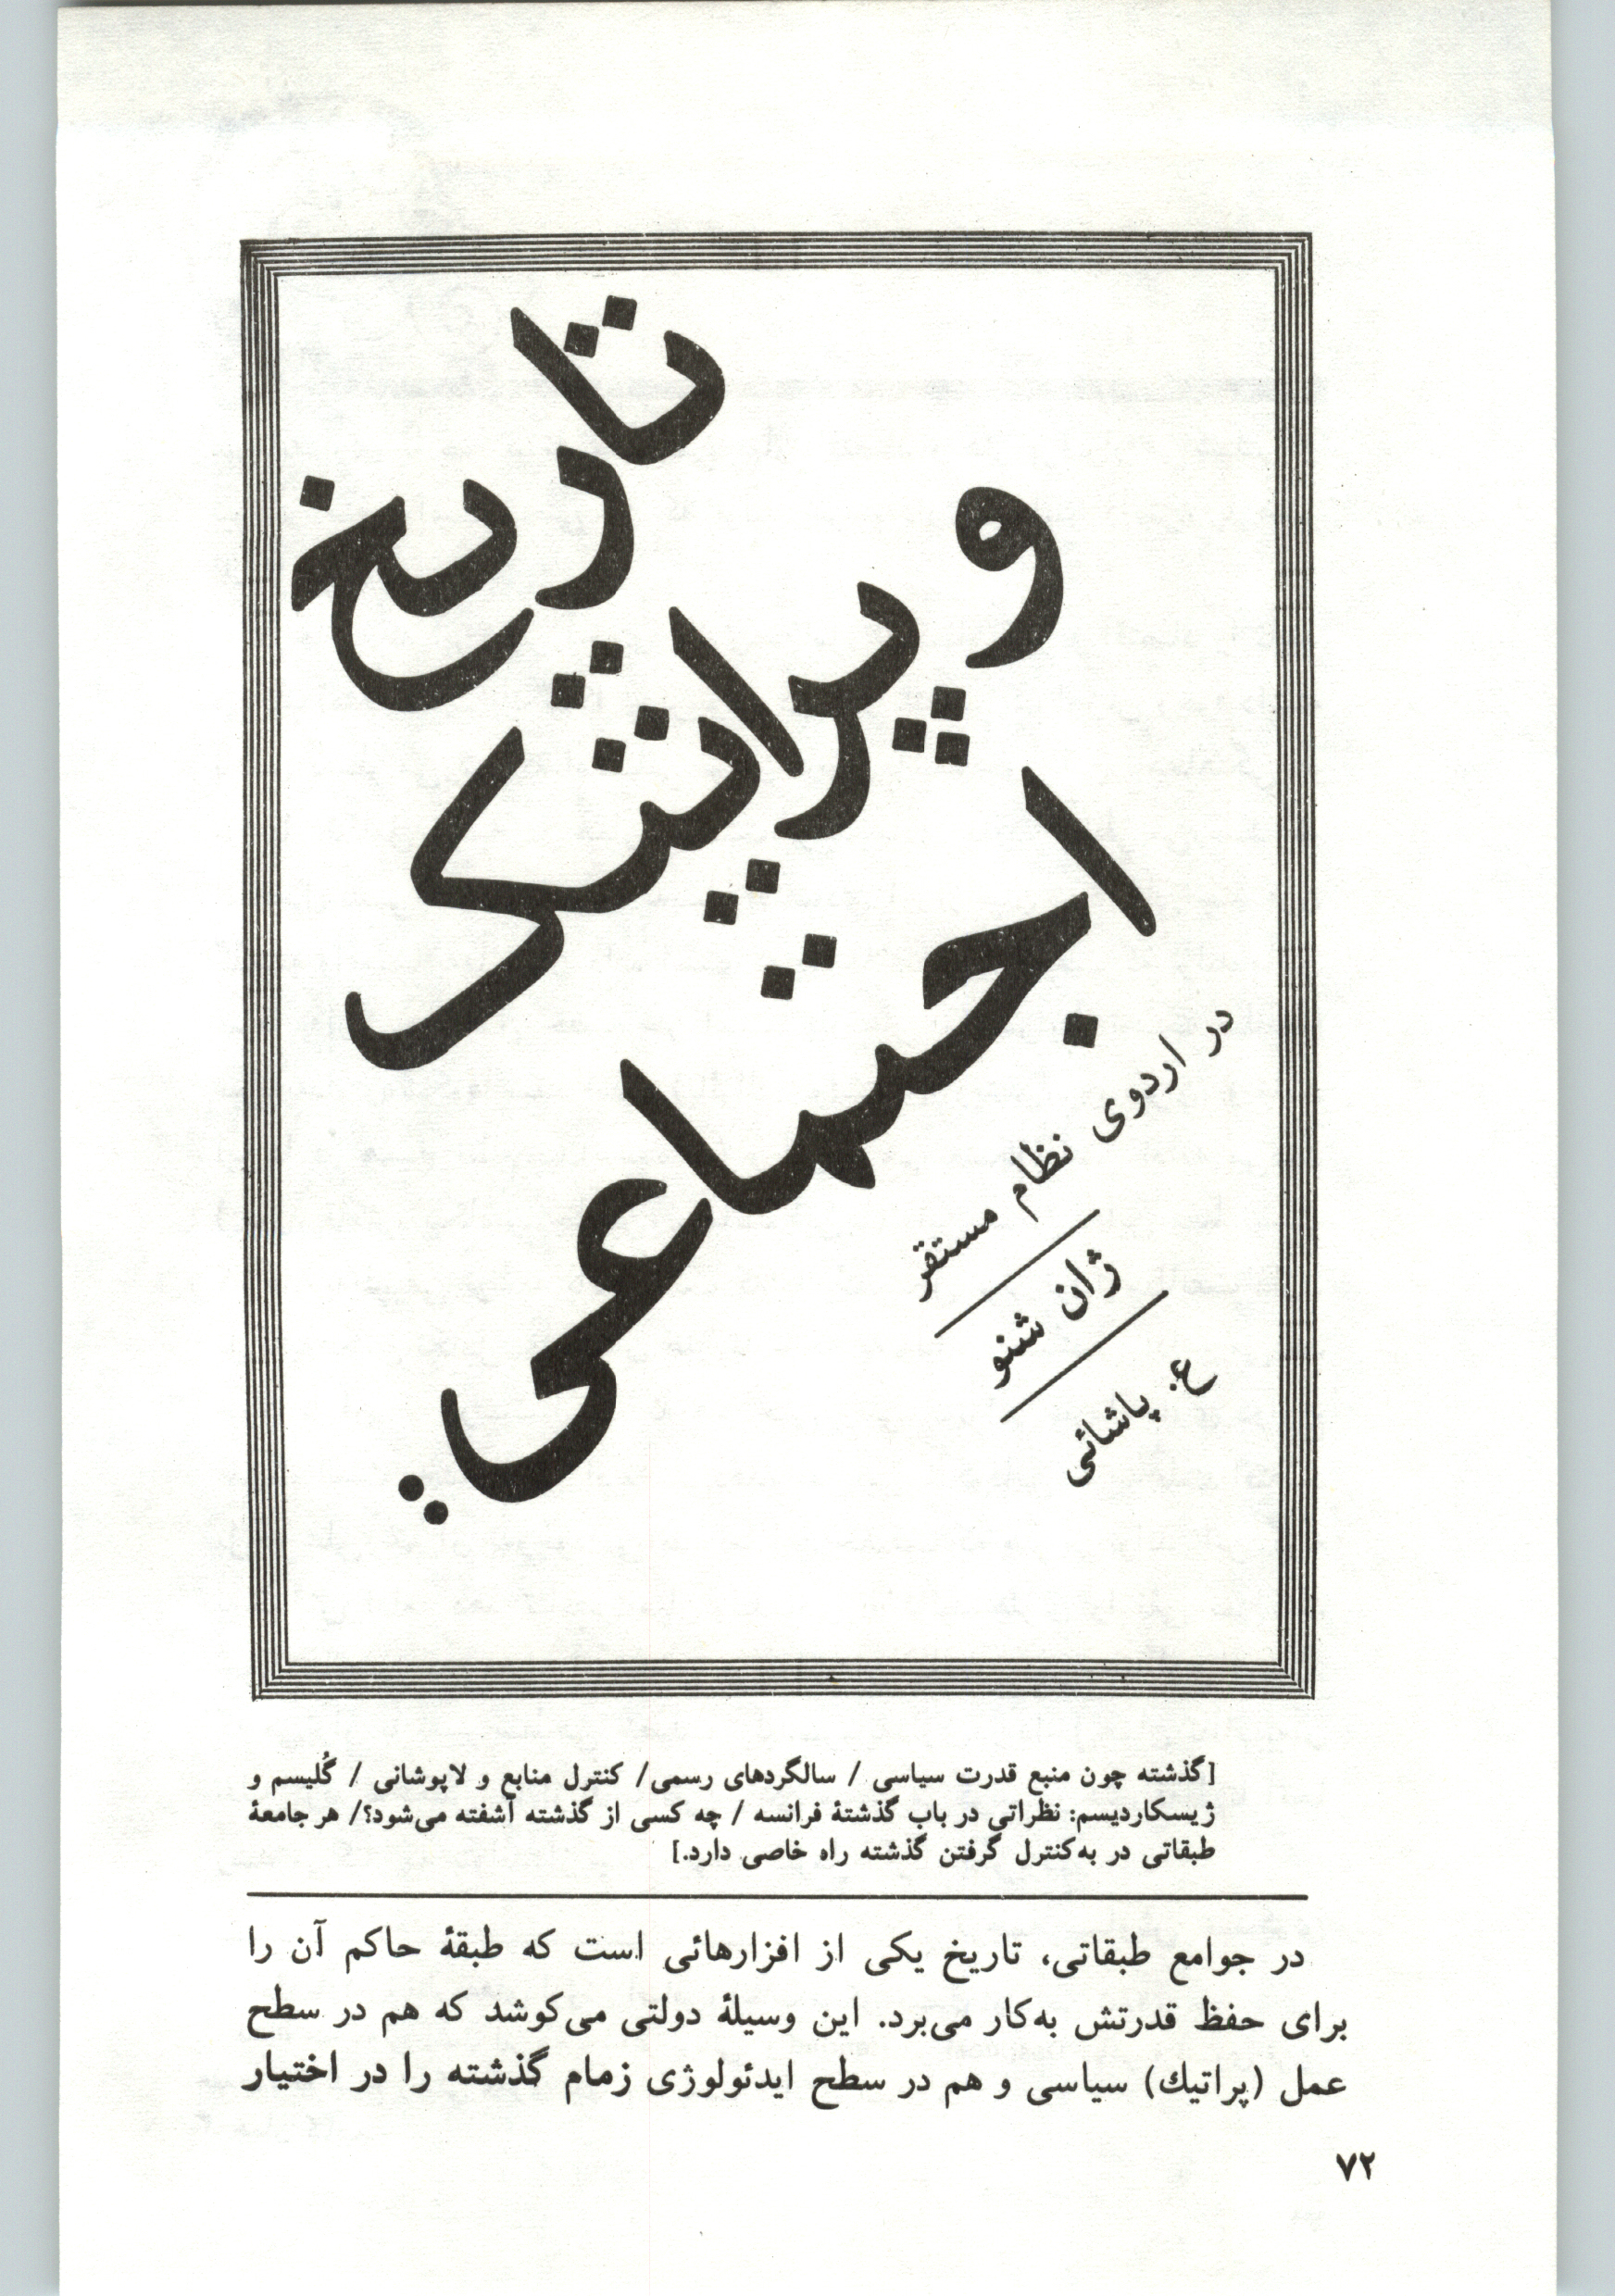 تاریخ
و پراتیک
اجتماعی:
در اردوی نظام مستقر
ژان شنو
ع. پاشائی
[گذشته چون منبع قدرت سیاسی / سالگردهای رسمی/ کنترل منابع و لاپوشانی / گُلیسم و
ژیسکاردیسم: نظراتی در باب گذشتهٔ فرانسه / چه کسی از گذشته آشفته می‌شود؟/ هر جامعهٔ
طبقاتی در به‌کنترل گرفتن گذشته راه خاصی دارد.]
در جوامع طبقاتی، تاریخ یکی از افزارهائی است که طبقهٔ حاکم آن را
برای حفظ قدرتش به‌کار می‌برد. این وسیلهٔ دولتی می‌کوشد که هم در سطح
عمل (پراتیك) سیاسی و هم در سطح ایدئولوژی زمام گذشته را در اختیار
۷۲